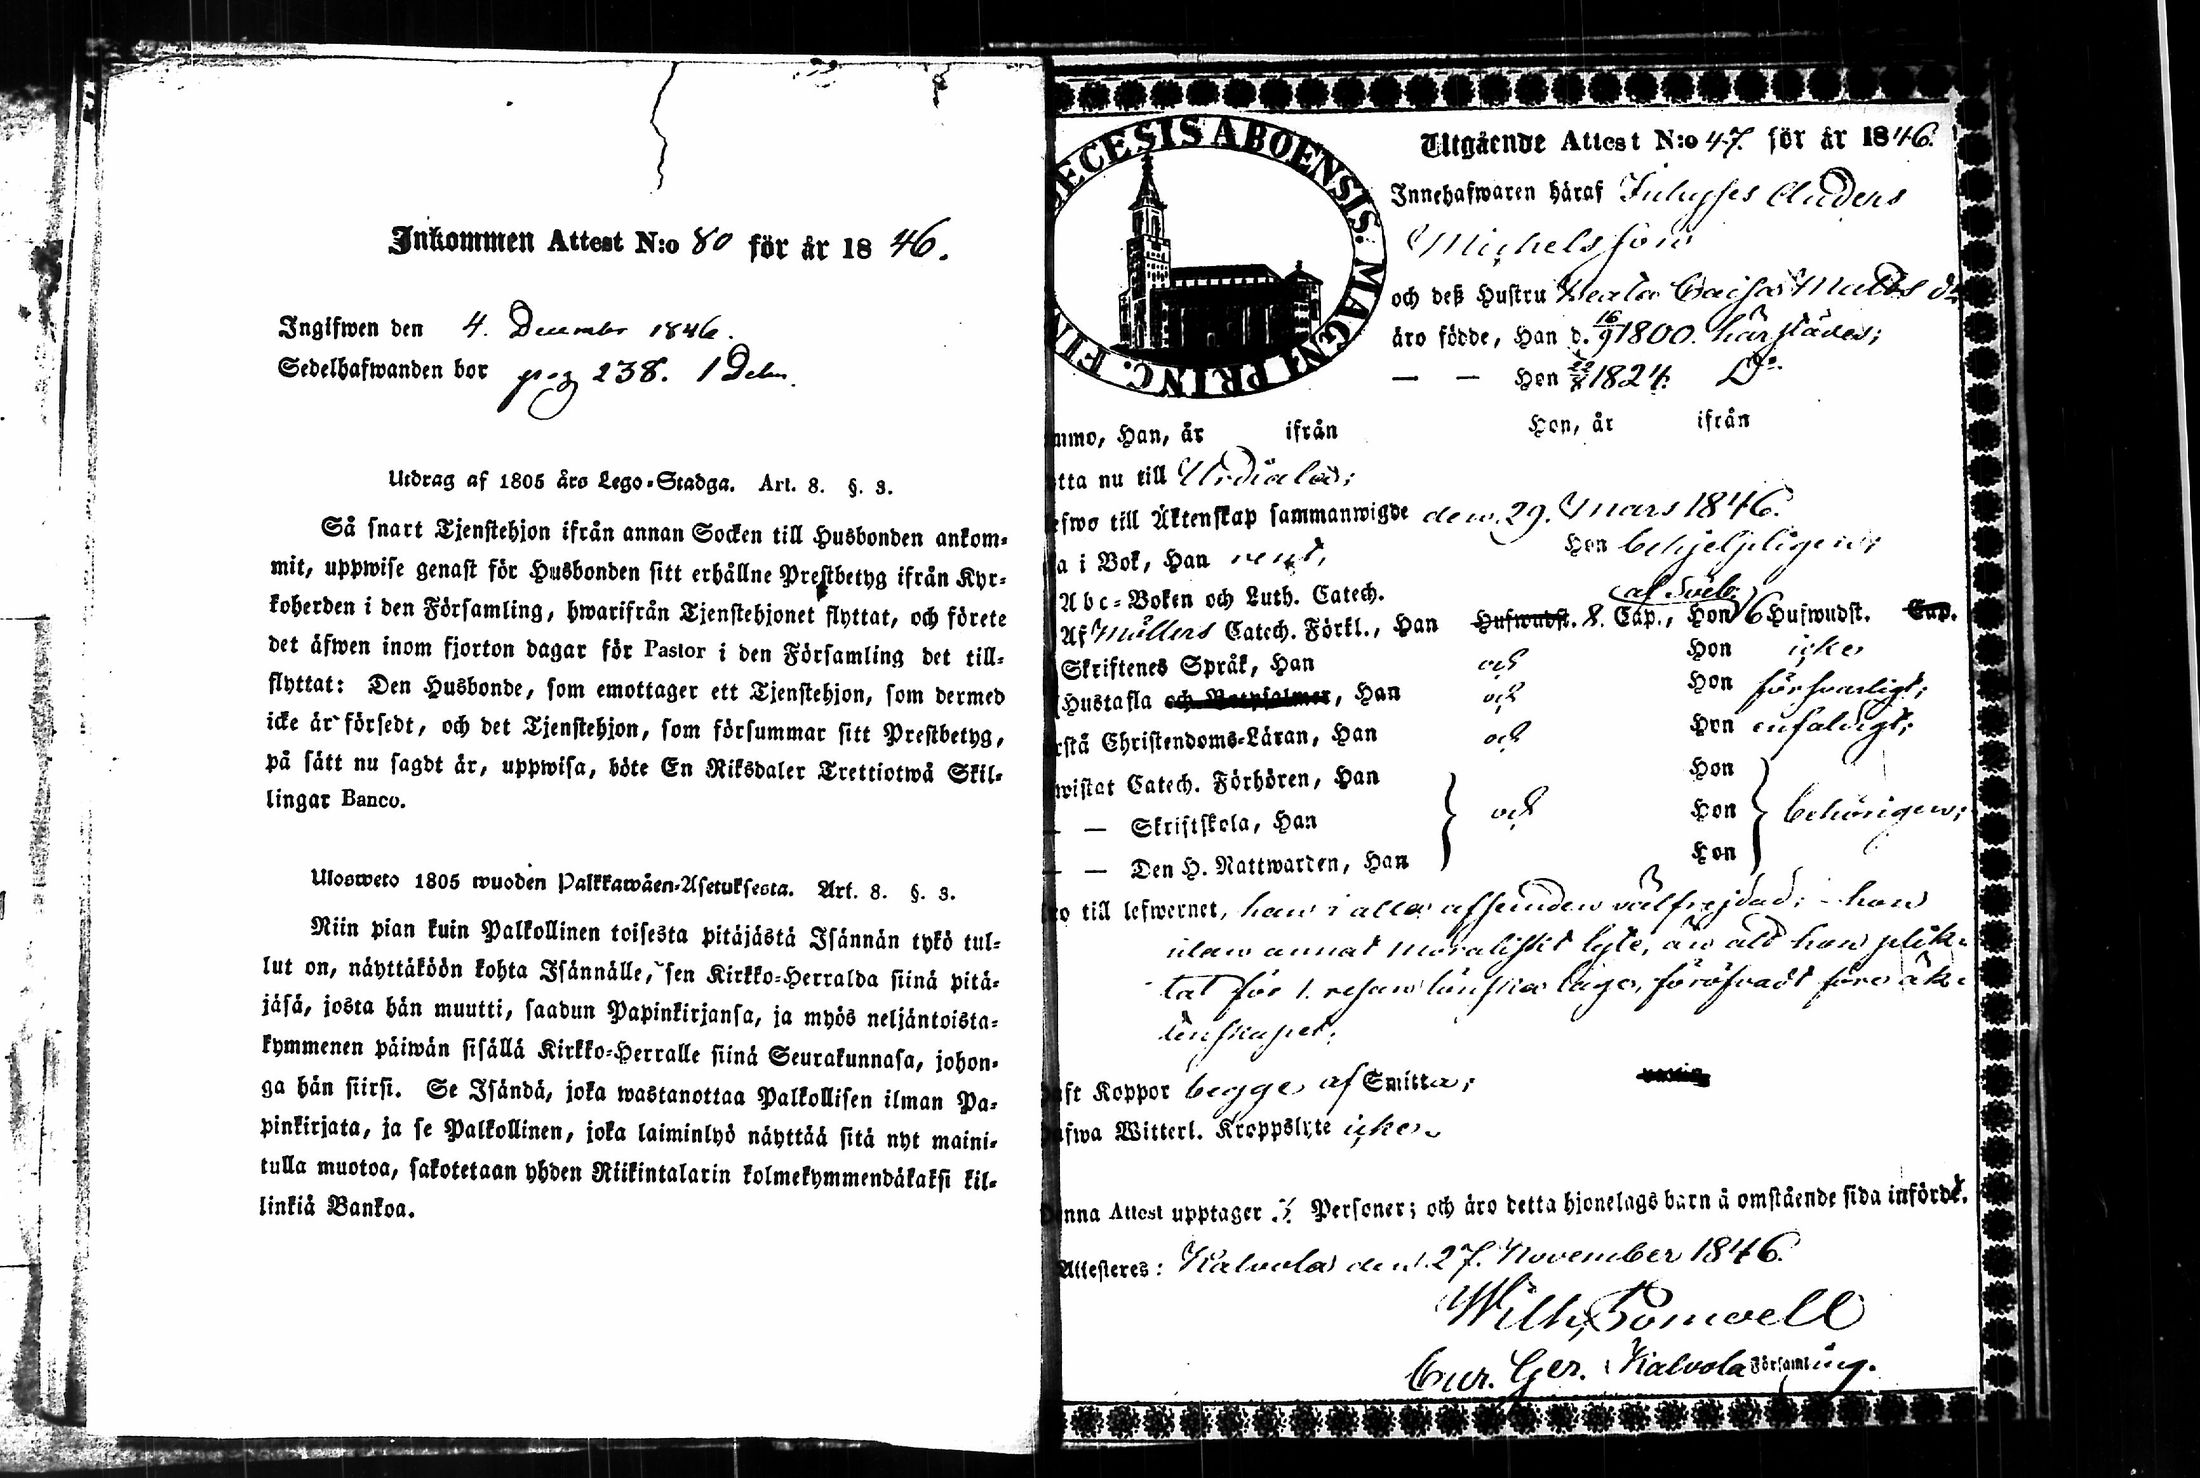 Inkommen Attest N:o 80 för år 1846.
Ingifwen den 4. December 1846.
Sedelhafwanden bor pag 238. 1 Delen.
Utdrag af 1805 års Lego-Stadga. Art. 8. §. 3.
Så snart Tjenstehjon ifrån annan Socken till Husbonden ankom-
mit, uppwise genast för Husbonden sitt erhållne Prestbetyg ifrån Kyr-
koherden i den Församling, hwarifrån Tjenstehjonet flyttat, och förete
det äfwen inom fjorton dagar för Pastor i den Församling det till-
flyttat: Den Husbonde, som emottager ett Tjenstehjon, som dermed
icke är försedt, och det Tjenstehjon, som försummar sitt Prestbetyg,
på sätt nu sagdt är, uppwisa, böte En Riksdaler Trettiotwå Skil-
lingar Banco.
Ulosweto 1805 wuoden Palkkawäen-Asetuksesta. Art. 8. §. 3.
Niin pian kuin Palkollinen toisesta pitäjästä Isännän tykö tul-
lut on, näyttäköön kohta Isännälle, sen Kirkko-Herralda siinä pitä-
jäsä, josta hän muutti, saadun Papinkirjansa, ja myös neljäntoista-
kymmenen päiwän sisällä Kirkko-Herralle siinä Seurakunnasa, johon-
ga hän siirsi. Se Isändä, joka wastanottaa Palkollisen ilman Pa-
pinkirjata, ja se Palkollinen, joka laiminlyö näyttää sitä nyt maini-
tulla muotoa, sakotetaan yhden Riikintalarin kolmekymmendäkaksi kil-
linkiä Bankoa.
ECESIS ABOENSIS. MAGNI PRINC. FIN
Utgående Attest N:o 47. för år 1846.
Innehafwaren häraf Inhyses Anders
Michelsson
och deß Hustru Beata Caisa Matts dr
äro födde, Han d. 16/9 1800. härstädes;
— — Hon 22/8 1824. Do.
mmo, Han, år ifrån Hon, år ifrån
tta nu till Urdiala;
efwo till Äktenskap sammanwigde den 29. Mars 1846.
a i Bok, Han rent, Hon behjelpligen;
Abc-Boken och Luth. Catech.
af Sveb.
Af Möllers Catech. Förkl., Han Hufwudst. 8. Cap., Hon 6 Hufwudst. Cap.
Skriftenes Språk, Han och Hon icke
Hustafla och Botpsalmer, Han och Hon försvarligt;
rstå Christendoms-Läran, Han och Hon enfaldigt;
wistat Catech. Förhören, Han Hon
— — Skriftskola, Han och Hon behörigen;
— — Den H. Nattwarden, Han Hon
ro till lefwernet, han i alla afseenden välfrejdad; hon
utan annat moraliskt lyte, än att hon plik-
tat för 1. resan lönskaläge, föröfvadt före äk-
tenskapet;
aft Koppor begge af Smitta;
afwa Witterl. Kroppslyte icke.
Denna Attest upptager Personer; och äro detta hjonelags barn å omstående sida införde.
Attesteres: Kalvola den 27. November 1846.
Wilh. Pomoell
Cur. Ger. i Kalvola Församling.